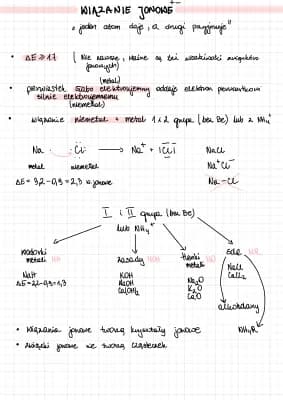 WIĄZANIE JONOWE + -
„ jeden atom daje, a drugi przyjmuje"
• ΔE ≥ 1,7 ( Nie zawsze, ważne są też właściwości związków
jonowych)
(metal)
• pierwiastek słabo elektroujemny oddaje elektron pierwiastkowi
silnie elektroujemnemu
(niemetal)
• wiązanie niemetal + metal z 1 i 2 grupy (bez Be) lub z NH₄⁺
Na · · Cl: → Na⁺ + |Cl|⁻ NaCl
metal niemetal Na⁺Cl⁻
ΔE = 3,2 - 0,9 = 2,3 w. jonowe Na-Cl
I i II grupa (bez Be)
lub NH₄⁺
wodorki
metali
NaH
ΔE = 2,2 - 0,9 = 1,3
zasady
KOH
NaOH
Ca(OH)₂
tlenki
metali
Na₂O
K₂O
CaO
sole
NaCl
CaCl₂
alkoholany
• Wiązania jonowe tworzą kryształy jonowe
• Związki jonowe nie tworzą cząsteczek